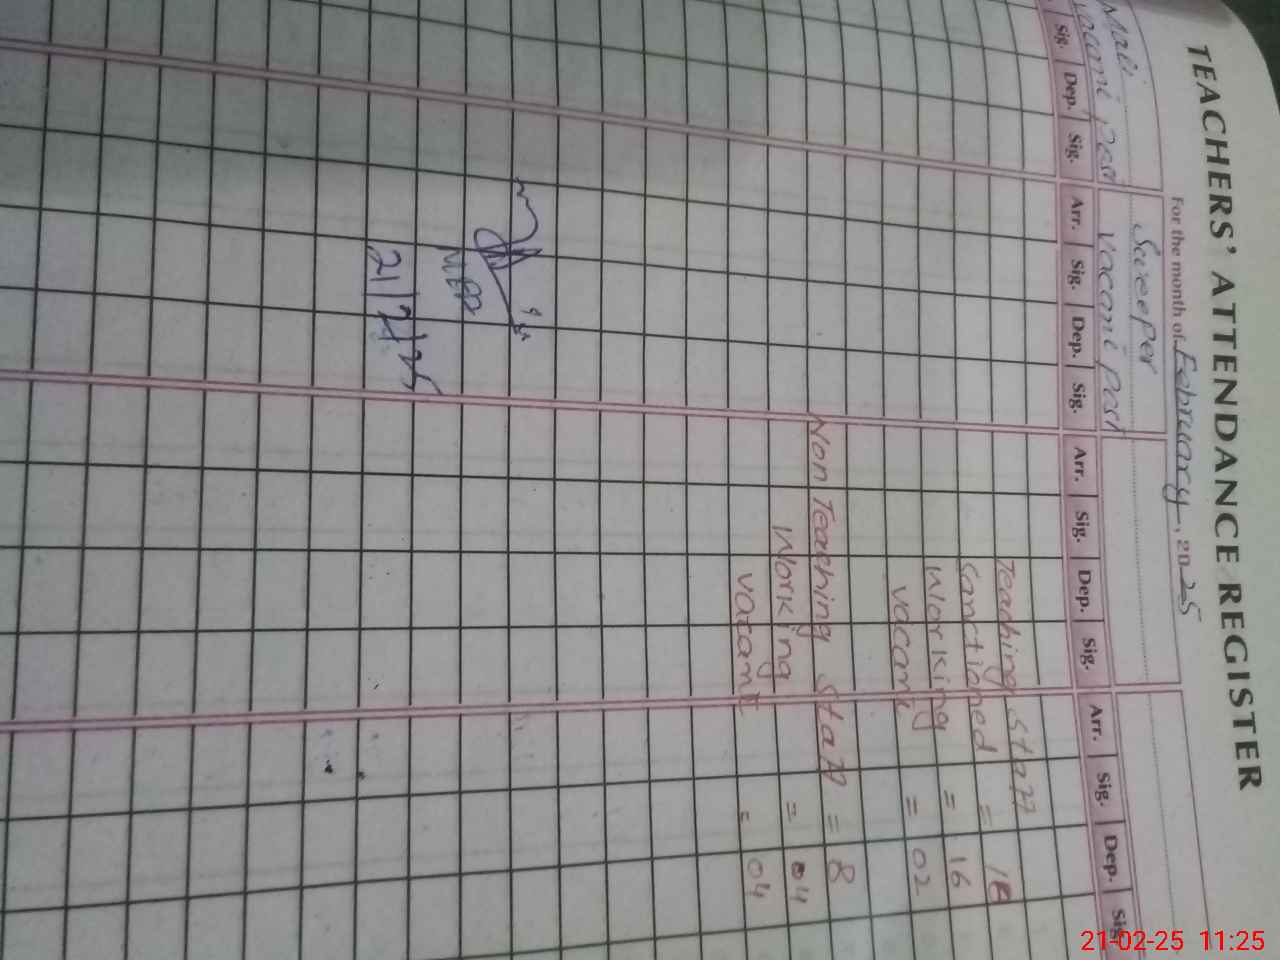 TEACHERS' ATTENDANCE REGISTER
For the month of February, 2025
Mali Sweeper
Vacant Post
Sig. Dep. Sig. Arr. Sig. Dep. Sig. Arr. Sig. Dep. Sig. Arr. Sig. Dep. Sig.
Teaching Staff
Sanctioned = 18
Working = 16
Vacant = 02
Non Teaching Staff = 8
Working = 04
Vacant = 04
21/2/25
21-02-25 11:25